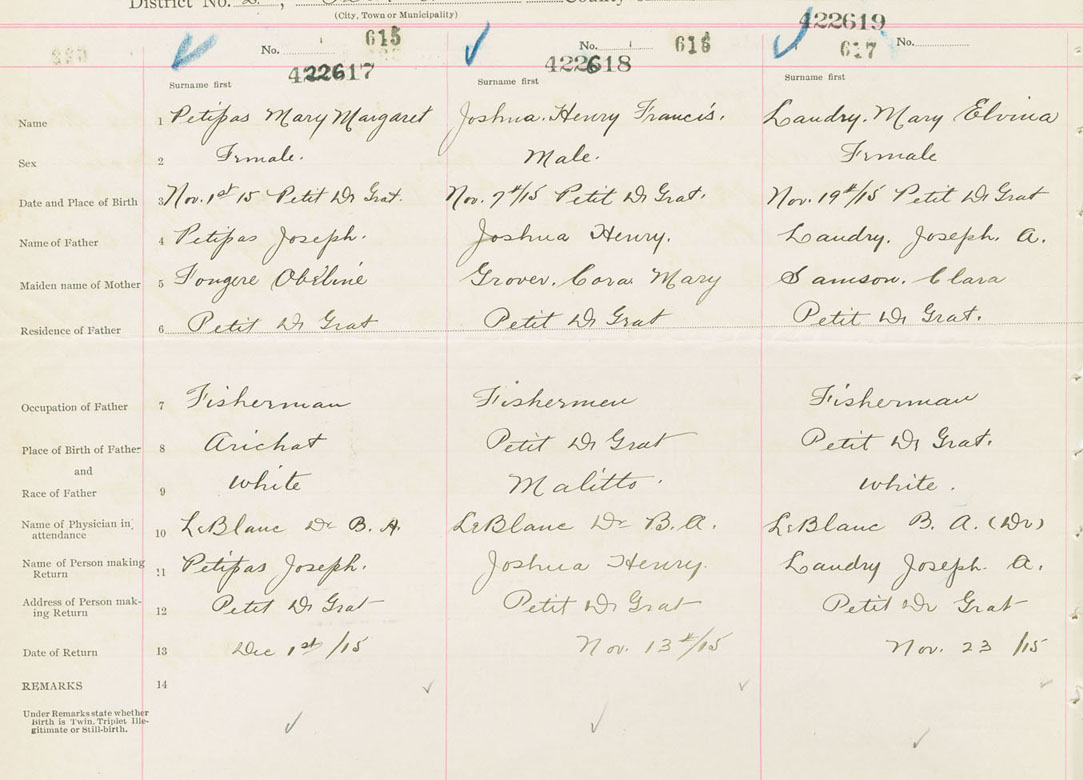 District No. 2,
County
(City, Town or Municipality)
422619
No. 615
No. 616
617 No.
422617
422618
Surname first
Surname first
Surname first
Name 1 Petipas Mary Margaret Joshua. Henry Francis. Landry. Mary Elvina
Sex 2 Female. Male. Female
Date and Place of Birth 3 Nov. 1st 15 Petit De Grat. Nov. 7th/15 Petit De Grat. Nov. 19th/15 Petit De Grat
Name of Father 4 Petipas Joseph. Joshua Henry. Landry. Joseph. A.
Maiden name of Mother 5 Fougere Obéline Grover. Cora Mary Samson. Clara
Residence of Father 6 Petit De Grat Petit De Grat Petit De Grat.
Occupation of Father 7 Fisherman Fishermen Fisherman
Place of Birth of Father 8 Arichat Petit De Grat Petit De Grat.
and
Race of Father 9 White Malitto. White.
Name of Physician in attendance 10 LeBlanc Dr B. A. LeBlanc Dr B. A. LeBlanc B. A. (Dr)
Name of Person making Return 11 Petipas Joseph. Joshua Henry. Landry Joseph. A.
Address of Person making Return 12 Petit De Grat Petit De Grat Petit De Grat
Date of Return 13 Dec 1st/15 Nov. 13th/15 Nov. 23/15
REMARKS 14
Under Remarks state whether
Birth is Twin, Triplet Ille-
gitimate or Still-birth.